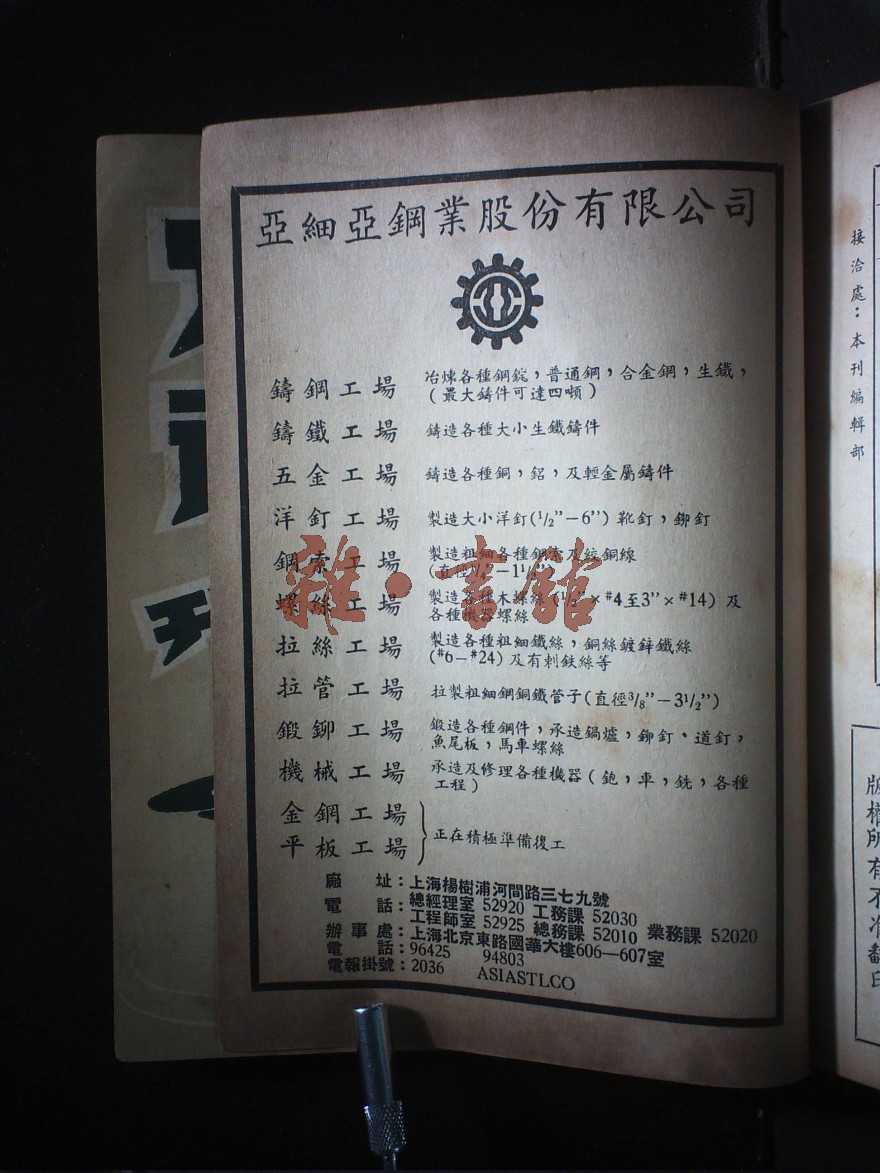 亞細亞鋼業股份有限公司
鑄鋼工場 冶煉各種鋼錠，普通鋼，合金鋼，生鐵，
（最大鑄件可達四噸）
鑄鐵工場 鑄造各種大小生鐵鑄件
五金工場 鑄造各種銅，鋁，及輕金屬鑄件
洋釘工場 製造大小洋釘(1/2”－6”) 靴釘，鉚釘
鋼索工場 製造粗細各種鋼索及絞銅線
螺絲工場 製造各種木螺絲 #4至3”×#14) 及
各種機器螺絲
拉絲工場 製造各種粗細鐵絲，銅絲鍍鋅鐵絲
(#6－#24) 及有刺鉄絲等
拉管工場 拉製粗細鋼銅鐵管子(直徑3/8”－3 1/2”)
鍛鉚工場 鍛造各種鋼件，承造鍋爐，鉚釘、道釘，
魚尾板，馬車螺絲
機械工場 承造及修理各種機器（鉋，車，銑，各種
工程）
金鋼工場
平板工場
正在積極準備復工
廠址：上海楊樹浦河間路三七九號
電話：總經理室 52920 工務課 52030
工程師室 52925 總務課 52010 業務課 52020
辦事處：上海北京東路國華大樓606—607室
電話：96425 94803
電報掛號：2036 ASIASTLCO
接洽處：本刊編輯部
版權所有不准翻印
雜·書館